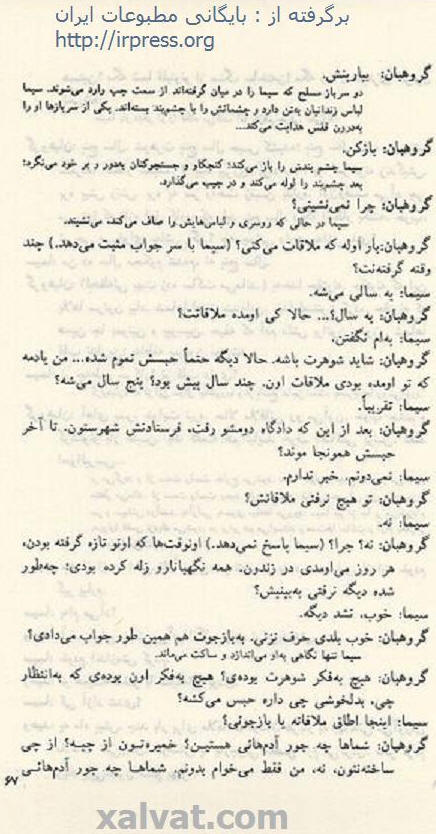 برگرفته از : بایگانی مطبوعات ایران
http://irpress.org
گروهبان: بیارینش.
دو سرباز مسلح که سیما را در میان گرفته‌اند از سمت چپ وارد می‌شوند. سیما
لباس زندانیان به‌تن دارد و چشمانش را با چشم‌بند بسته‌اند. یکی از سربازها او را
به‌درون قفس هدایت می‌کند...
گروهبان: بازکن.
سیما چشم بندش را باز می‌کند؛ کنجکاو و جستجوکنان به‌دور و بر خود می‌نگرد؛
بعد چشم‌بند را لوله می‌کند و در جیب می‌گذارد.
گروهبان: چرا نمی‌نشینی؟
سیما در حالی که روسری و لباس‌هایش را صاف می‌کند، می‌نشیند.
گروهبان: بار اوله که ملاقات می‌کنی؟ (سیما با سر جواب مثبت می‌دهد.) چند
وقته گرفته‌نت؟
سیما: یه سالی می‌شه.
گروهبان: یه سال؟... حالا کی اومده ملاقاتت؟
سیما: به‌ام نگفتن.
گروهبان: شاید شوهرت باشه. حالا دیگه حتماً حبسش تموم شده... من یادمه
که تو اومده بودی ملاقات اون. چند سال پیش بود؟ پنج سال می‌شه؟
سیما: تقریباً.
گروهبان: بعد از این که دادگاه دومشو رفت، فرستادنش شهرستون. تا آخر
حبسش همونجا موند؟
سیما: نمی‌دونم. خبر ندارم.
گروهبان: تو هیچ نرفتی ملاقاتش؟
سیما: نه.
گروهبان: نه؟ چرا؟ (سیما پاسخ نمی‌دهد.) اونوقت‌ها که اونو تازه گرفته بودن،
هر روز می‌اومدی در زندون. همه نگهبانارو ذله کرده بودی؛ چه‌طور
شده دیگه نرفتی به‌بینیش؟
سیما: خوب، نشد دیگه.
گروهبان: خوب بلدی حرف نزنی. به‌بازجوت هم همین طور جواب می‌دادی؟
سیما تنها نگاهی به‌او می‌اندازد و ساکت می‌ماند.
گروهبان: هیچ به‌فکر شوهرت بوده‌ی؟ هیچ به‌فکر اون بوده‌ی که به‌انتظار
چی، به‌دلخوشی چی داره حبس می‌کشه؟
سیما: اینجا اطاق ملاقاته یا بازجوئی؟
گروهبان: شماها چه جور آدم‌هائی هستین؟ خمیره‌تون از چیه؟ از چی
ساخته‌نتون، نه، من فقط می‌خوام بدونم. شماها چه جور آدم‌هائی
۶۷
xalvat.com